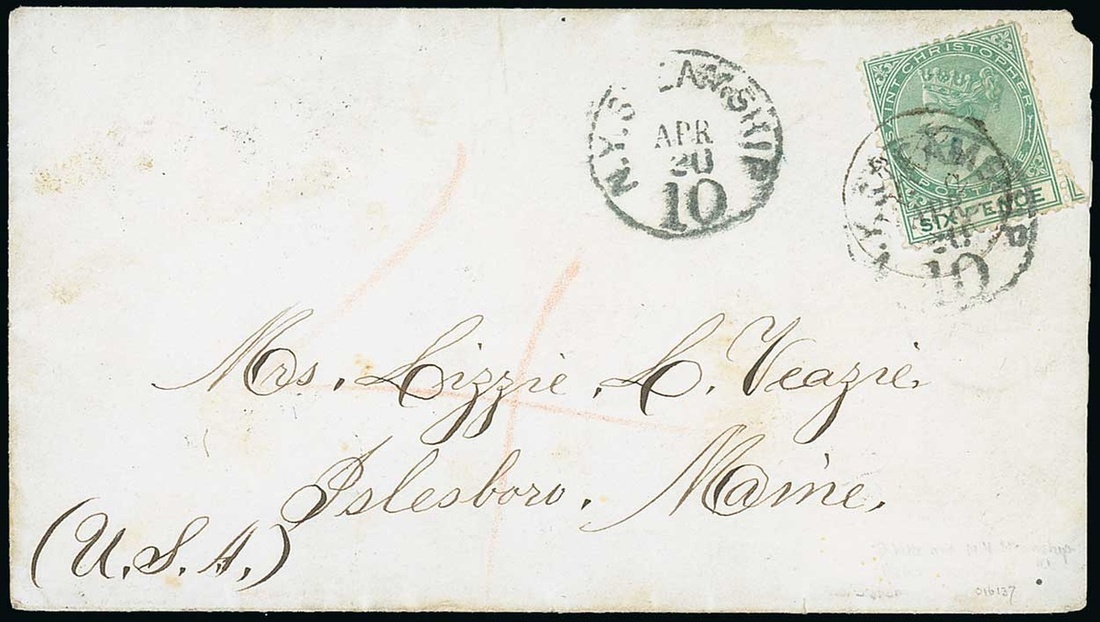 N.Y. STEAMSHIP
APR
20
10
SAINT CHRISTOPHER
POSTAGE
SIXPENCE
10
Mrs. Lizzie L. Veazie.
Islesboro, Maine.
(U.S.A.)
016137